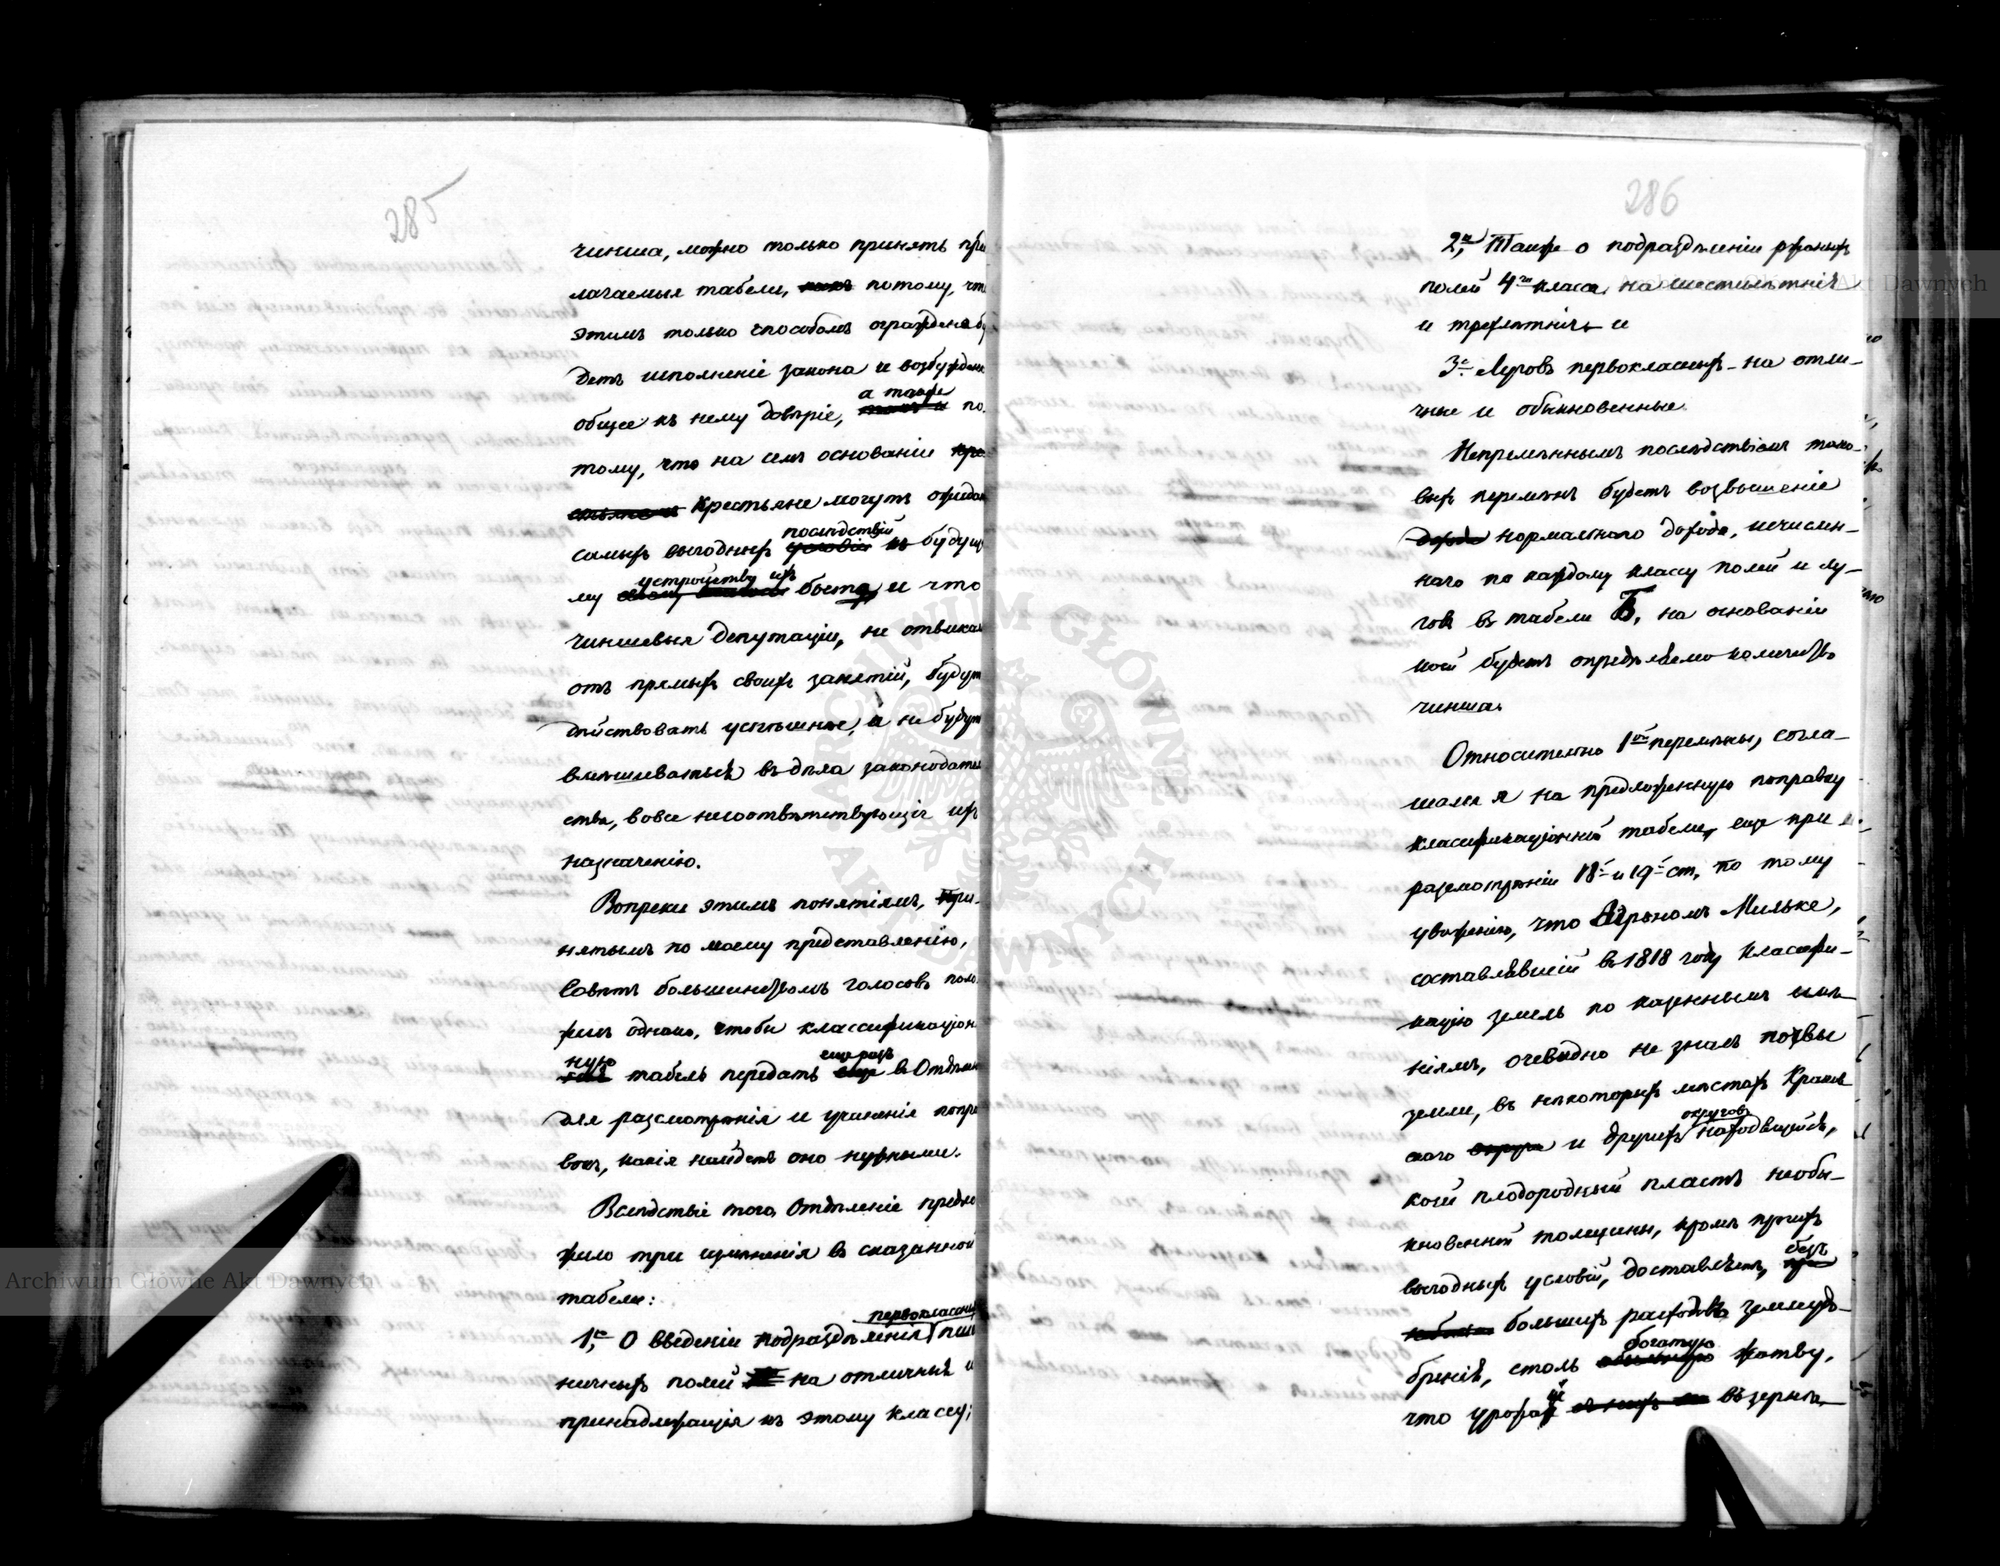 285
чинша, можно только принять при
лагаемыя табели, потому, что
этимъ только способомъ ограждено бу
детъ исполненіе закона и возбуждено
а также
общее къ нему довѣріе, по
тому, что на семъ основаніи
Крестьяне могутъ ожидать
послѣдствій
самыхъ выгодныхъ условій въ будуще
устройству ихъ
му быта, и что
чиншевыя Депутаціи, не отвлекаясь
отъ прямыхъ своихъ занятій, будутъ
дѣйствовать успѣшнѣе, а не будутъ
вмѣшиваться въ дѣла законодатель
ства, вовсе несоотвѣтствующія ихъ
назначенію.
Вопреки этимъ понятіямъ, при-
нятымъ по моему представленію,
Совѣтъ большинствомъ голосовъ поло
жилъ однако, чтобы классификаціон
ную еще разъ
табель передать еще въ Отдѣленіе
для разсмотрѣнія и учиненія попра
вокъ, какія найдетъ оно нужными.
Вслѣдствіе того, Отдѣленіе предло
жило три измѣненія въ сказанной
табели:
первоклассныхъ
1е, О введеніи подраздѣленія пше
ничныхъ полей на отличныя и
принадлежащія къ этому классу;
286
2е, Также о подраздѣленіи ржаныхъ
полей 4го класса, на шестилѣтнія
и трехлѣтнія и
3е. Луговъ первоклассныхъ на отли-
чные и обыкновенные.
Непремѣннымъ послѣдствіемъ тако-
выхъ перемѣнъ будетъ возвышеніе
нормальнаго дохода, исчислен-
наго по каждому классу полей и лу-
говъ въ табели Б, на основаніи
коей будетъ опредѣляемо количество
чинша.
Относительно 1ой перемѣны, согла-
шался я на предложенную поправку
класификаціонной табели, еще при
разсмотрѣніи 18й и 19й ст, по тому
уваженію, что Барономъ Мильке,
составлявшій въ 1818 году класифи-
кацію земель по казеннымъ имѣ-
ніямъ, очевидно не зналъ почвы
земли, въ нѣкоторыхъ мѣстахъ Краков-
округовъ
скаго округа и другихъ находящуюся,
коей плодородный пластъ необы-
кновенной толщины, кромѣ прочихъ
безъ
выгодныхъ условій, доставляетъ,
большихъ расходовъ землеудо-
богатую
бренія, столь обильную жатву,
что урожай въ зернѣ,
Archiwum Główne Akt Dawnych
Archiwum Główne Akt Dawnych
ARCHIWUM GŁÓWNE AKT DAWNYCH